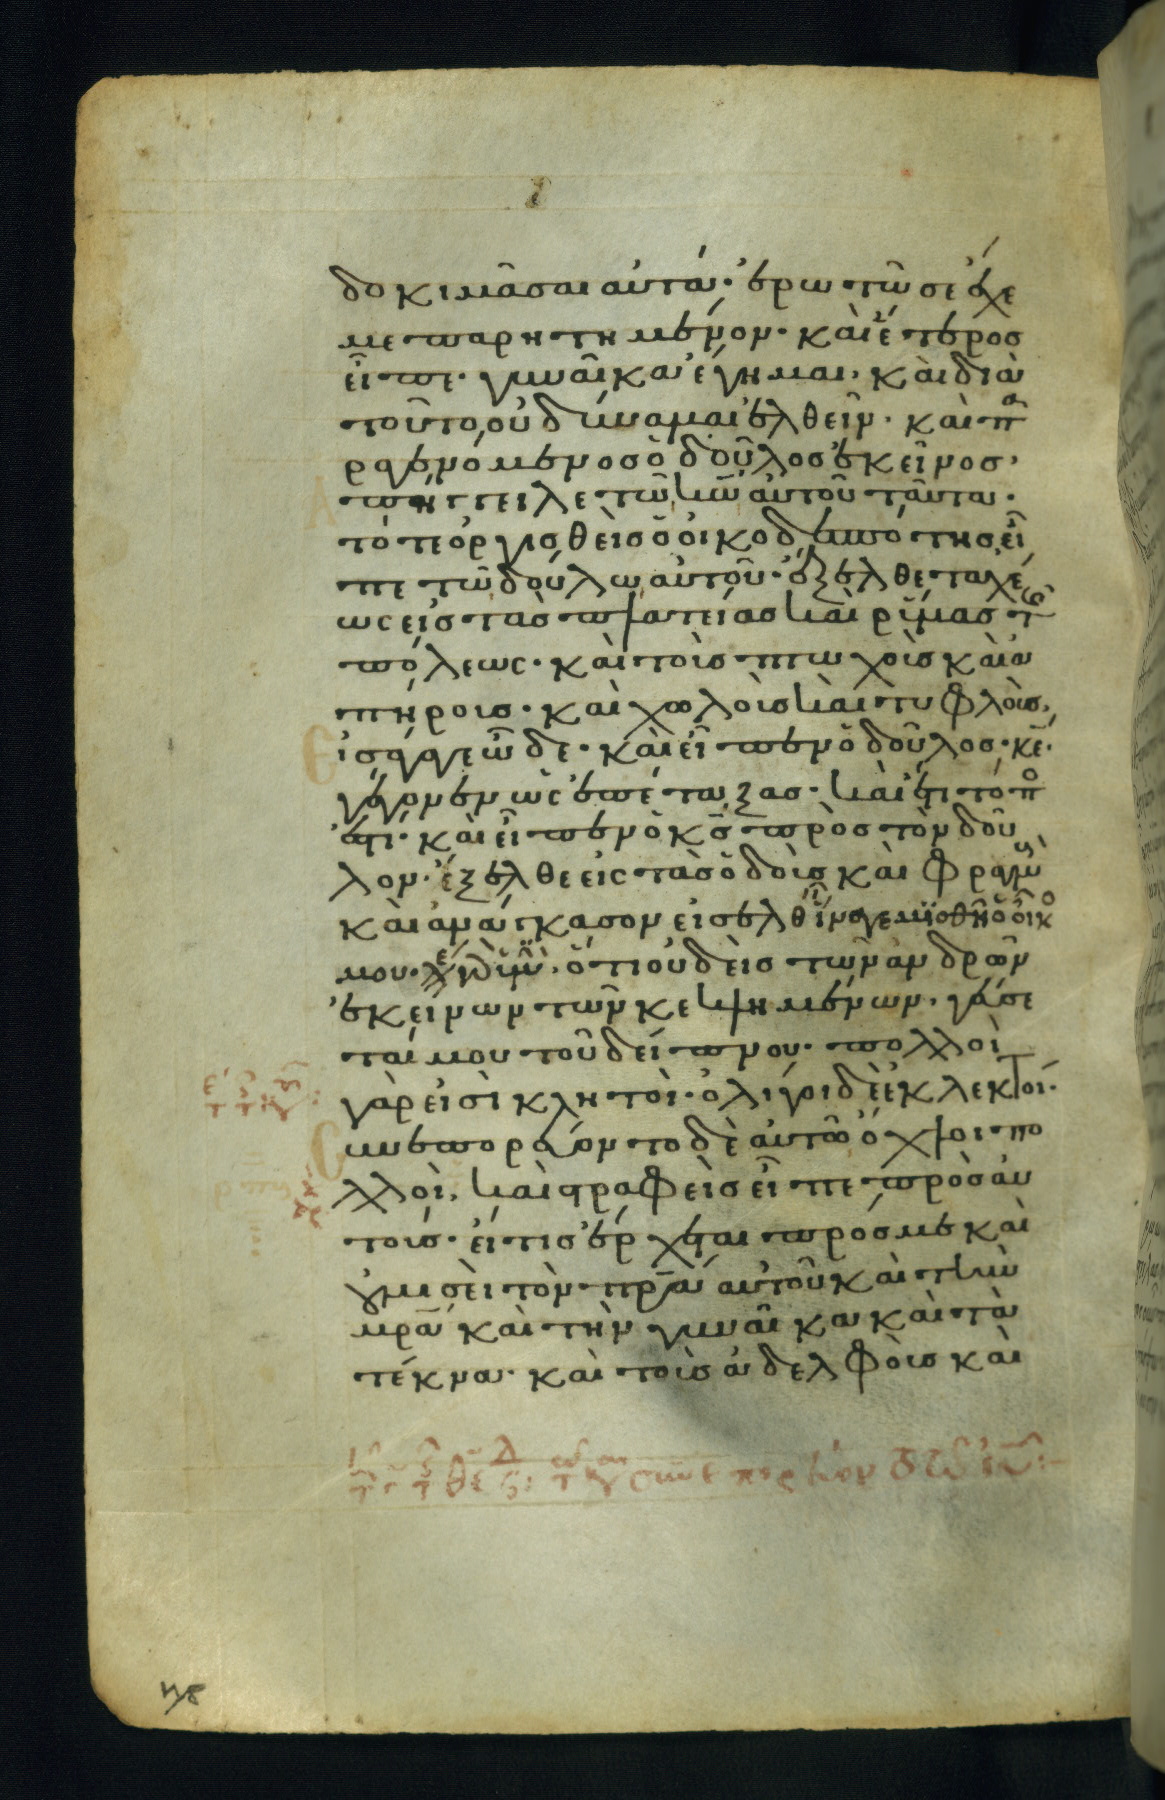 δοκιμᾶσαι αὐτά· ἐρωτῶ σε ἔχε
με παρητημένον· καὶ ἕτερος
εἶπε· γυναῖκα ἔγημα· καὶ διὰ
τοῦτο, οὐ δύναμαι ἐλθεῖν· καὶ πα
ραγενόμενος ὁ δοῦλος ἐκεῖνος,
ἀπήγγειλε τῶ κ̅ω̅ αὐτοῦ ταῦτα·
τότε ὀργισθεὶς ὁ οἰκοδεσπότης εἶ
πε τῶ δούλω αὐτοῦ· ἔξελθε ταχέ
ως εἰς τὰς πλατείας καὶ ῥύμας τῆς
πόλεως· καὶ τοὺς πτωχοὺς καὶ ἀ
πήρους· καὶ χωλοὺς καὶ τυφλοὺς,
εἰσάγαγε ὧδε· καὶ εἶπεν ὁ δοῦλος· κ̅ε̅·
γέγονεν ὡς ἐπέταξας· καὶ ἔτι τόπο
ἐστι· καὶ εἶπεν ὁ κ̅ς̅ πρὸς τὸν δοῦ
λον· ἔξελθε εἰς τὰς ὁδοὺς καὶ φραγμοὺ
καὶ ἀνάγκασον εἰσελθεῖν ἵνα γεμισθῆ ὁ οἶκο
μου· λέγω ὑμῖν· ὅτι οὐδεὶς τῶν ἀνδρῶν
ἐκείνων τῶν κεκλημένων, γεύσε
ταί μου τοῦ δείπνου· πολλοὶ
γὰρ εἰσὶ κλητοὶ· ὀλίγοι δὲ ἐκλεκτοί·
Συνεπορεύοντο δὲ αὐτῶ ὄχλοι πο
λλοὶ, καὶ στραφεὶς εἶπε πρὸς αὐ
τούς· εἴ τις ἔρχεται πρός με καὶ
οὐ μισεῖ τὸν π̅ρ̅α̅ αὐτοῦ καὶ τὴν
μ̅ρ̅α̅ καὶ τὴν γυναῖκα καὶ τὰ
τέκνα· καὶ τοὺς ἀδελφοὺς καὶ